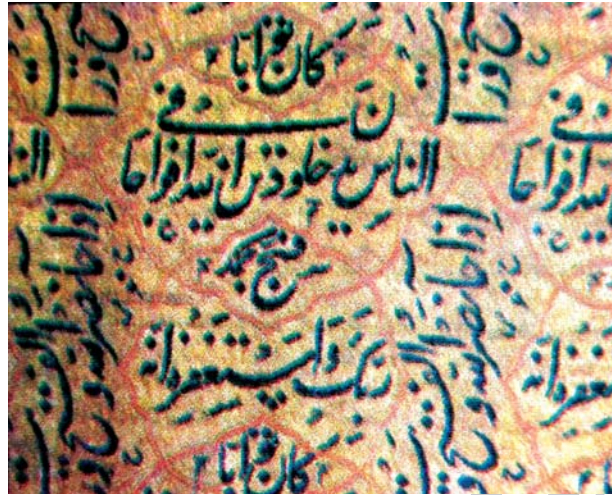 كان توابا
الناس يدخلون في دين الله افواجا
فسبح بحمد
ربك واستغفره انه
كان توابا
اذا جاء نصر الله والفتح ورايت